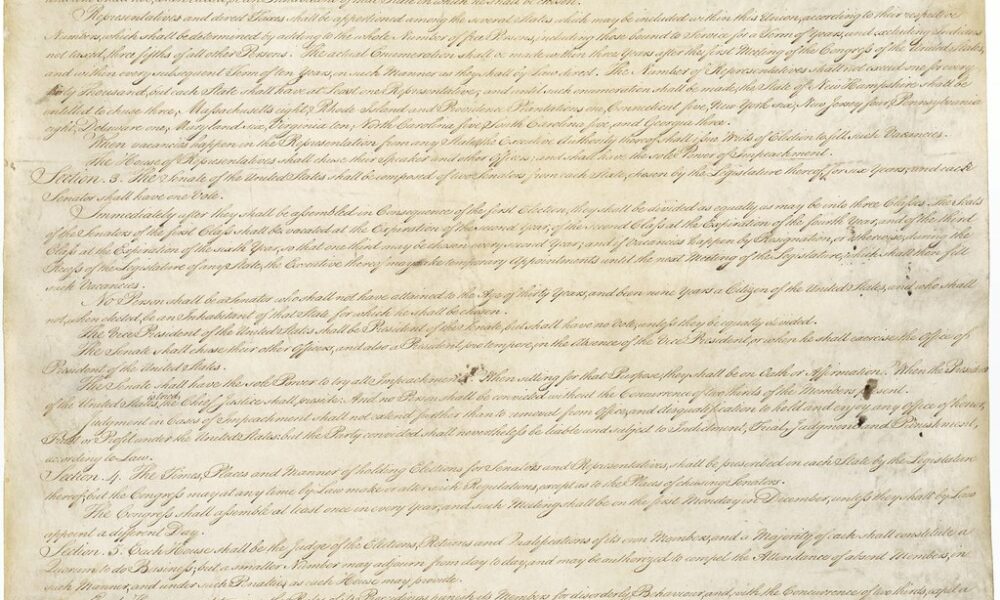 Representatives and direct Taxes shall be apportioned among the several States which may be included within this Union, according to their respective
Numbers, which shall be determined by adding to the whole Number of free Persons, including those bound to Service for a Term of Years, and excluding Indians
not taxed, three fifths of all other Persons. The actual Enumeration shall be made within three Years after the first Meeting of the Congress of the United States,
and within every subsequent Term of ten Years, in such Manner as they shall by Law direct. The Number of Representatives shall not exceed one for every
thirty Thousand, but each State shall have at Least one Representative; and until such enumeration shall be made, the State of New Hampshire shall be
entitled to chuse three, Massachusetts eight, Rhode Island and Providence Plantations one, Connecticut five, New York six, New Jersey four, Pennsylvania
eight, Delaware one, Maryland six, Virginia ten, North Carolina five, South Carolina five, and Georgia three.
When vacancies happen in the Representation from any State, the Executive Authority thereof shall issue Writs of Election to fill such Vacancies.
The House of Representatives shall chuse their Speaker and other Officers; and shall have the sole Power of Impeachment.
Section. 3. The Senate of the United States shall be composed of two Senators from each State, chosen by the Legislature thereof, for six Years; and each
Senator shall have one Vote.
Immediately after they shall be assembled in Consequence of the first Election, they shall be divided as equally as may be into three Classes. The Seats
of the Senators of the first Class shall be vacated at the Expiration of the second Year, of the second Class at the Expiration of the fourth Year, and of the third
Class at the Expiration of the sixth Year, so that one third may be chosen every second Year; and if Vacancies happen by Resignation, or otherwise, during the
Recess of the Legislature of any State, the Executive thereof may make temporary Appointments until the next Meeting of the Legislature, which shall then fill
such Vacancies.
No Person shall be a Senator who shall not have attained to the Age of thirty Years, and been nine Years a Citizen of the United States, and who shall
not, when elected, be an Inhabitant of that State for which he shall be chosen.
The Vice President of the United States shall be President of the Senate, but shall have no Vote, unless they be equally divided.
The Senate shall chuse their other Officers, and also a President pro tempore, in the Absence of the Vice President, or when he shall exercise the Office of
President of the United States.
The Senate shall have the sole Power to try all Impeachments. When sitting for that Purpose, they shall be on Oath or Affirmation. When the President
of the United States is tried, the Chief Justice shall preside: And no Person shall be convicted without the Concurrence of two thirds of the Members present.
Judgment in Cases of Impeachment shall not extend further than to removal from Office, and disqualification to hold and enjoy any Office of honor,
Trust or Profit under the United States: but the Party convicted shall nevertheless be liable and subject to Indictment, Trial, Judgment and Punishment,
according to Law.
Section. 4. The Times, Places and Manner of holding Elections for Senators and Representatives, shall be prescribed in each State by the Legislature
thereof; but the Congress may at any time by Law make or alter such Regulations, except as to the Places of chusing Senators.
The Congress shall assemble at least once in every Year, and such Meeting shall be on the first Monday in December, unless they shall by Law
appoint a different Day.
Section. 5. Each House shall be the Judge of the Elections, Returns and Qualifications of its own Members, and a Majority of each shall constitute a
Quorum to do Business; but a smaller Number may adjourn from day to day, and may be authorized to compel the Attendance of absent Members, in
such Manner, and under such Penalties as each House may provide.